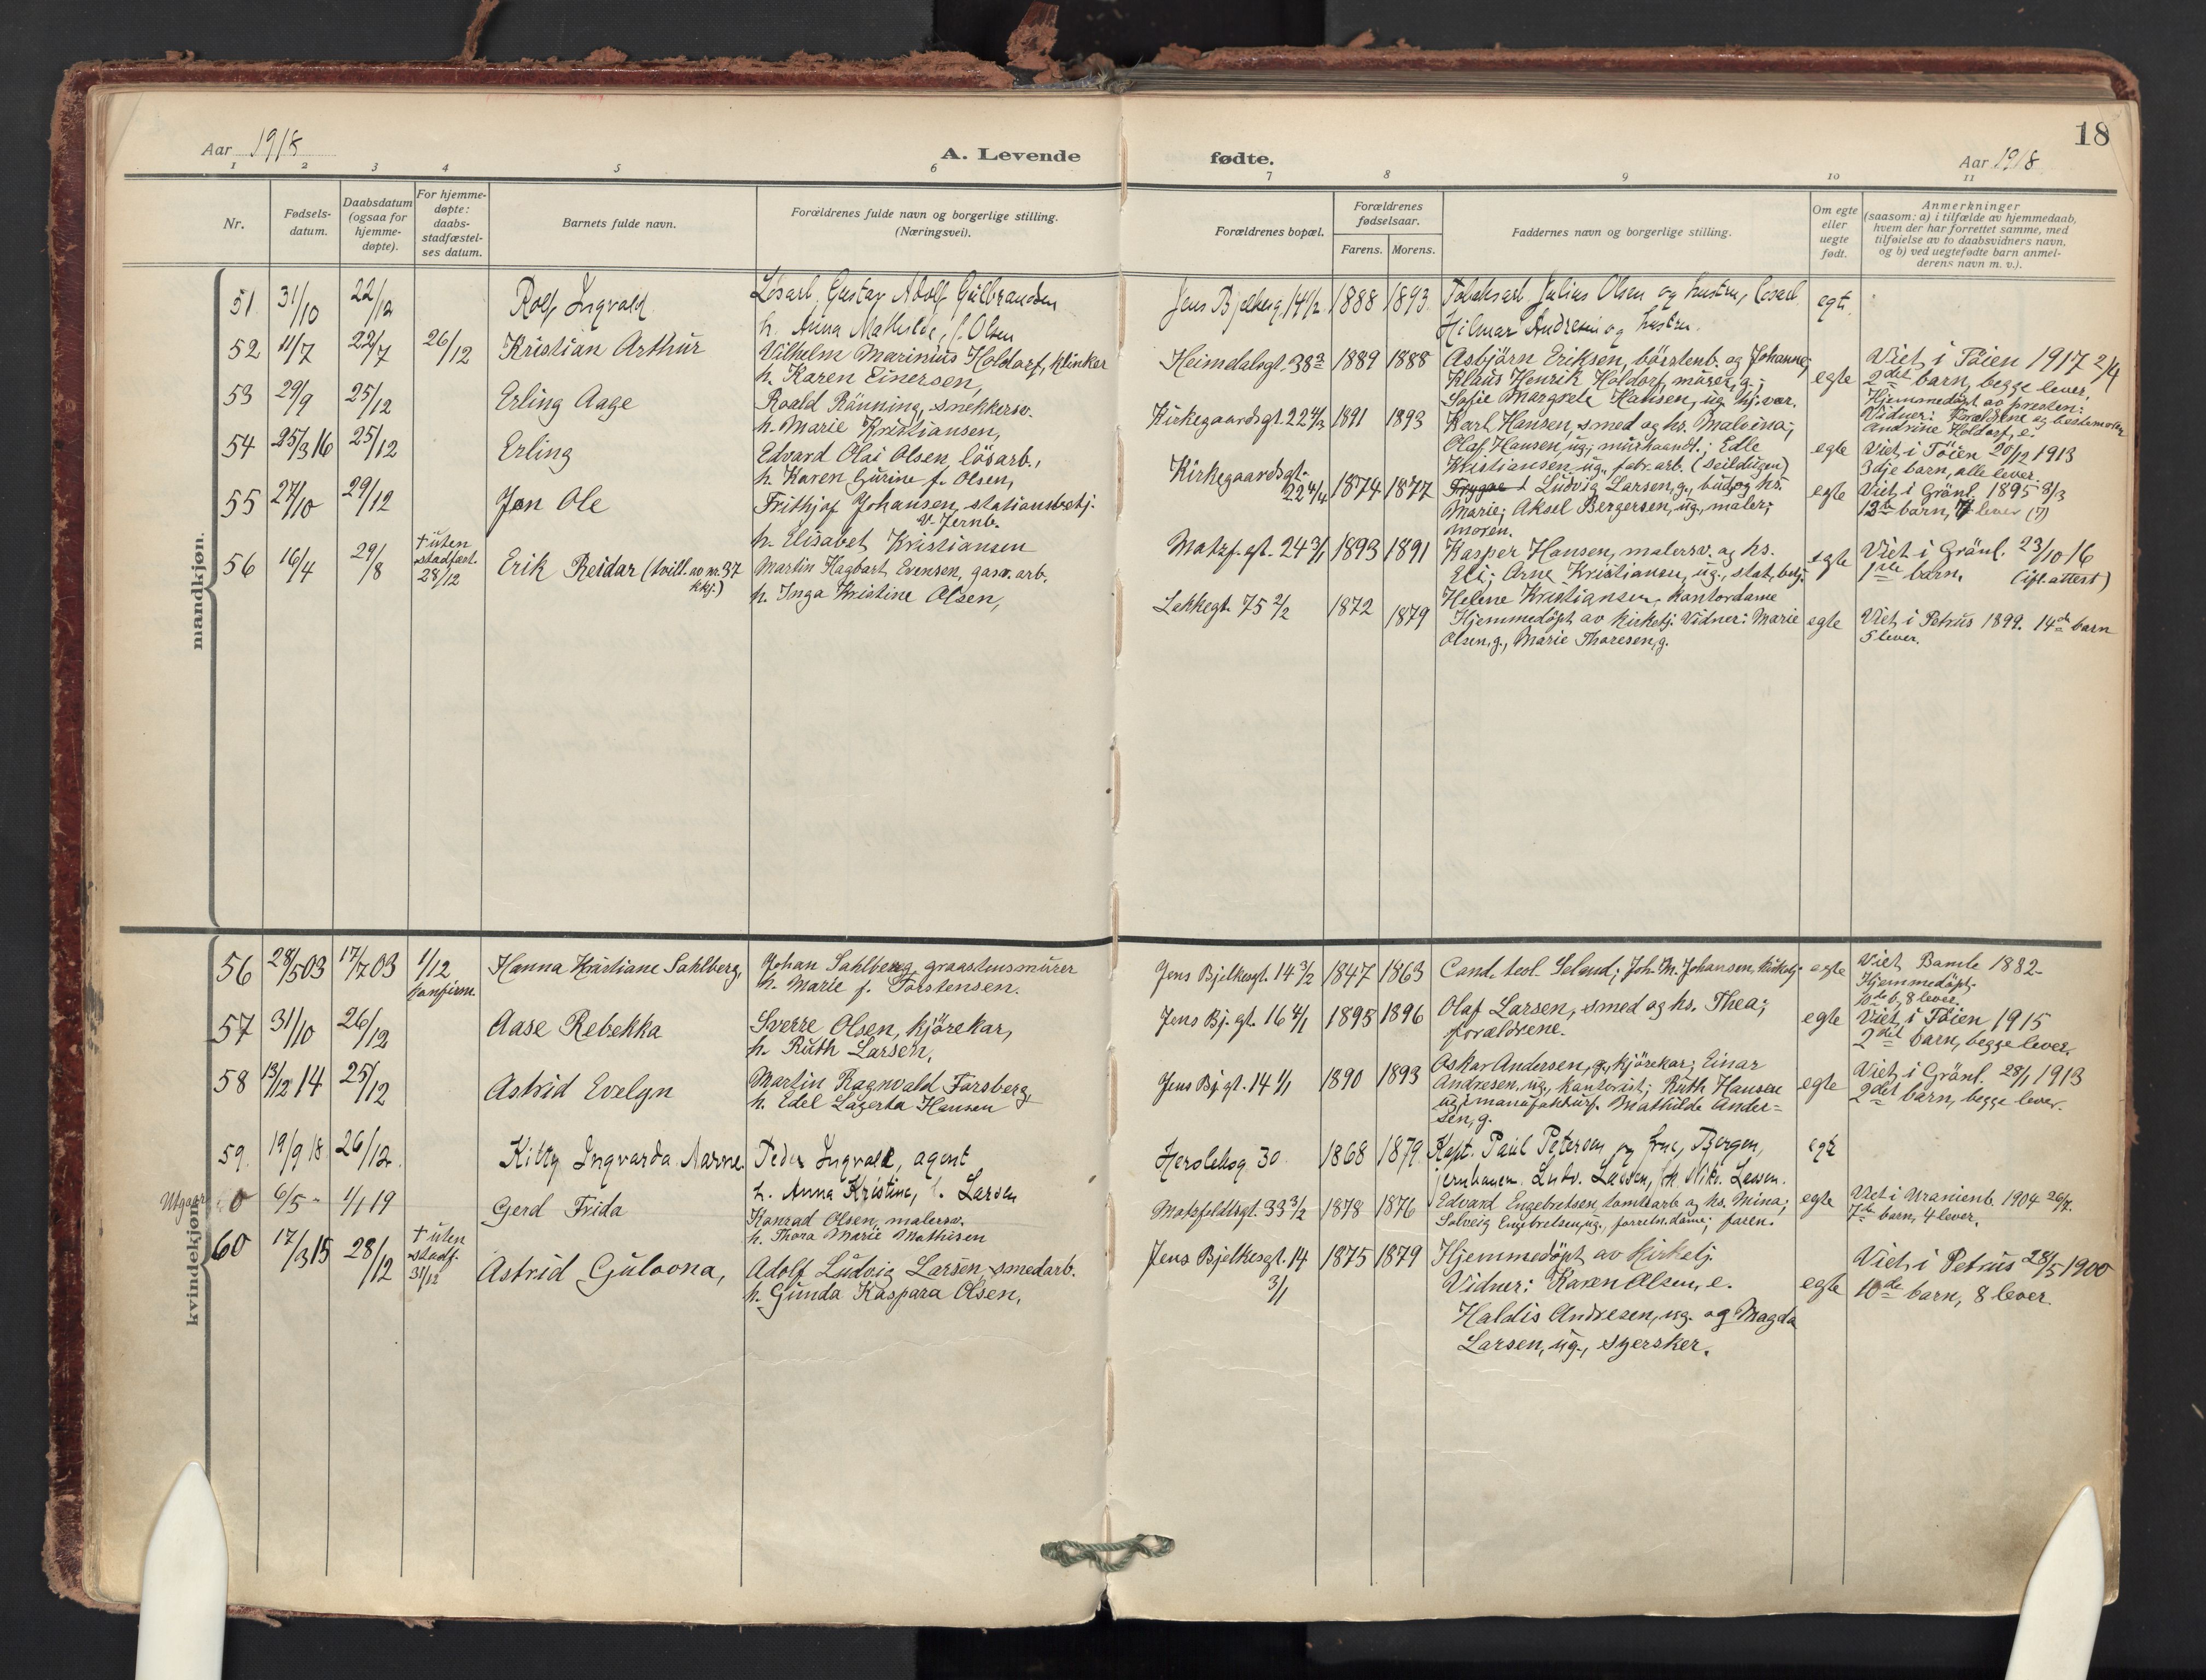 18
Aar 1918
A. Levende
fødte.
Aar 1918
1 2 3 4 5 6 7 8 9 10 11
Nr.
Fødsels-
datum.
Daabsdatum
(ogsaa for
hjemme-
døpte).
For hjemme-
døpte:
daabs-
stadfæstel-
ses datum.
Barnets fulde navn.
Forældrenes fulde navn og borgerlige stilling.
(Næringsvei).
Forældrenes bopæl.
Forældrenes
fødselsaar.
Farens. Morens.
Faddernes navn og borgerlige stilling.
Om egte
eller
uegte
født.
Anmerkninger
(saasom: a) i tilfælde av hjemmedaab,
hvem der har forrettet samme, med
tilføielse av to daabsvidners navn,
og b) ved uegtefødte barn anmel-
derens navn m. v.).
mandkjøn.
51 31/10 22/12 Rolf Ingvald
Løsarb. Gustav Adolf Gulbrandsen
h. Anna Mathilde, f. Olsen
Jens Bjelkesg. 14 1/2 1888 1893
Tobaksarb. Julius Olsen og hustru, løsarb.
Hilmar Andresen og hustru.
egt.
52 11/7 22/7 26/12 Kristian Arthur
Vilhelm Marinius Holdorf, klinker
h. Karen Einersen,
Heimdalsgt. 38 3/2 1889 1888
Asbjörn Eriksen, börstenb. og Johanne;
Klaus Henrik Holdorf, murer, g.;
Sofie Margrete Hansen, ug. hj. vær.
egte
Viet i Töien 1917 2/4
2det barn, begge lever.
Hjemmedöpt av presten:
Vidner: Forældrene og bestemoren
Andrine Holdorf, e.
53 29/9 25/12 Erling Aage
Roald Rönning, snekkersv.
h. Marie Kristiansen,
Kirkegaardsgt. 22 4/3 1891 1893
Karl Hansen, smed og hs. Malvina;
Olaf Hansen, ug.; Edle
Kristiansen, ug., fabr. arb. (Seildugen)
egte
Viet i Töien 20/12 1913
3dje barn, alle lever.
54 25/3 16 25/12 Erling
Edvard Olai Olsen, lösarb.,
h. Karen Gurine f. Olsen,
Kirkegaardsgt.
22 4/4 1874 1877
Ludvig Larsen, g., bud og hs.
Marie; Aksel Bergersen, ug., maler;
moren.
egte
Viet i Grönl. 1895 8/3
12te barn, 7 lever (7)
55 27/10 29/12 Jan Ole
Frithjof Johansen, stationsbetj.
v. Jernb.
h. Elisabet Kristiansen
Matzf. gt. 24 3/1 1893 1891
Kasper Hansen, malersv. og hs.
Eli; Arne Kristiansen, ug., stat. betj.
Helene Kristiansen, kontordame
egte
Viet i Grönl. 23/10 16
1ste barn. (ifl. attest)
56 16/4 29/8 † uten
stadfæst.
28/12
Erik Reidar (tvill. av nr. 37
kkj.)
Martin Hagbart Evensen, gasv. arb.
h. Inga Kristine Olsen,
Lakkegt. 75 2/2 1872 1879
Hjemmedöpt av kirketj. Vidner: Marie
Olsen, g., Marie Thoresen, g.
egte
Viet i Petrus 1899. 14de barn
5 lever.
kvindekjøn.
56 28/5 03 17/7 03 1/12
konfirm.
Hanna Kristiane Sahlberg,
Johan Sahlberg, graastensmurer
h. Marie f. Torstensen.
Jens Bjelkesgt. 14 3/2 1847 1863
Cand. teol. Selend; Joh. M. Johansen, kirketj.
egte
Viet, Bamle 1882-
Hjemmedöpt.
10de b., 8 lever.
57 31/10 26/12 Aase Rebekka
Sverre Olsen, kjörekar,
h. Ruth Larsen,
Jens Bj. gt. 16 4/1 1895 1896
Olaf Larsen, smed og hs. Thea;
forældrene.
egte
Viet i Töien 1915
2det barn, begge lever.
58 13/12 14 25/12 Astrid Evelyn
Martin Ragnvald Forsberg,
h. Edel Lagerta Hansen
Jens Bj. gt. 14 1/1 1890 1893
Oskar Andersen, g., kjörekar; Einar
Andresen, ug., kontorist; Ruth Hansen
ug. i manufakturf. Mathilde Ander=
sen, g.
egte
Viet i Grönl. 28/1 1913
2det barn, begge lever.
59. 19/9 18 26/12. Kitty Ingvarda Aarne.
Peder Ingvald, agent
h. Anna Kristine, f. Larsen
Herslebsg. 30. 1868 1879.
Kapt. Paul Petersen og frue, Bergen,
egt
Utgaar 60 6/5 - 1/1 19 Gerd Frida
Konrad Olsen, malersv.
h. Thora Marie Mathisen
Motzfeldtsgt. 33 3/2 1878 1876
Edvard Engebretsen, tomtearb. og hs. Mina;
Solveig Engebretsen, ug., forretn. dame; faren.
egte
Viet i Uranienb. 1904 26/7.
7de barn, 4 lever.
60 17/3 15 28/12 † uten
stadf.
31/12
Astrid Gulovna,
Adolf Ludvig Larsen, smedarb.
h. Gunda Kaspara Olsen,
Jens Bjelkesgt. 14
3/1
1875 1879
Hjemmedöpt av kirketj.
Vidner: Karen Olsen, e.
Haldis Andresen, ug. og Magda
Larsen, ug., syersker.
egte
Viet i Petrus 28/5 1900
10de barn, 8 lever.